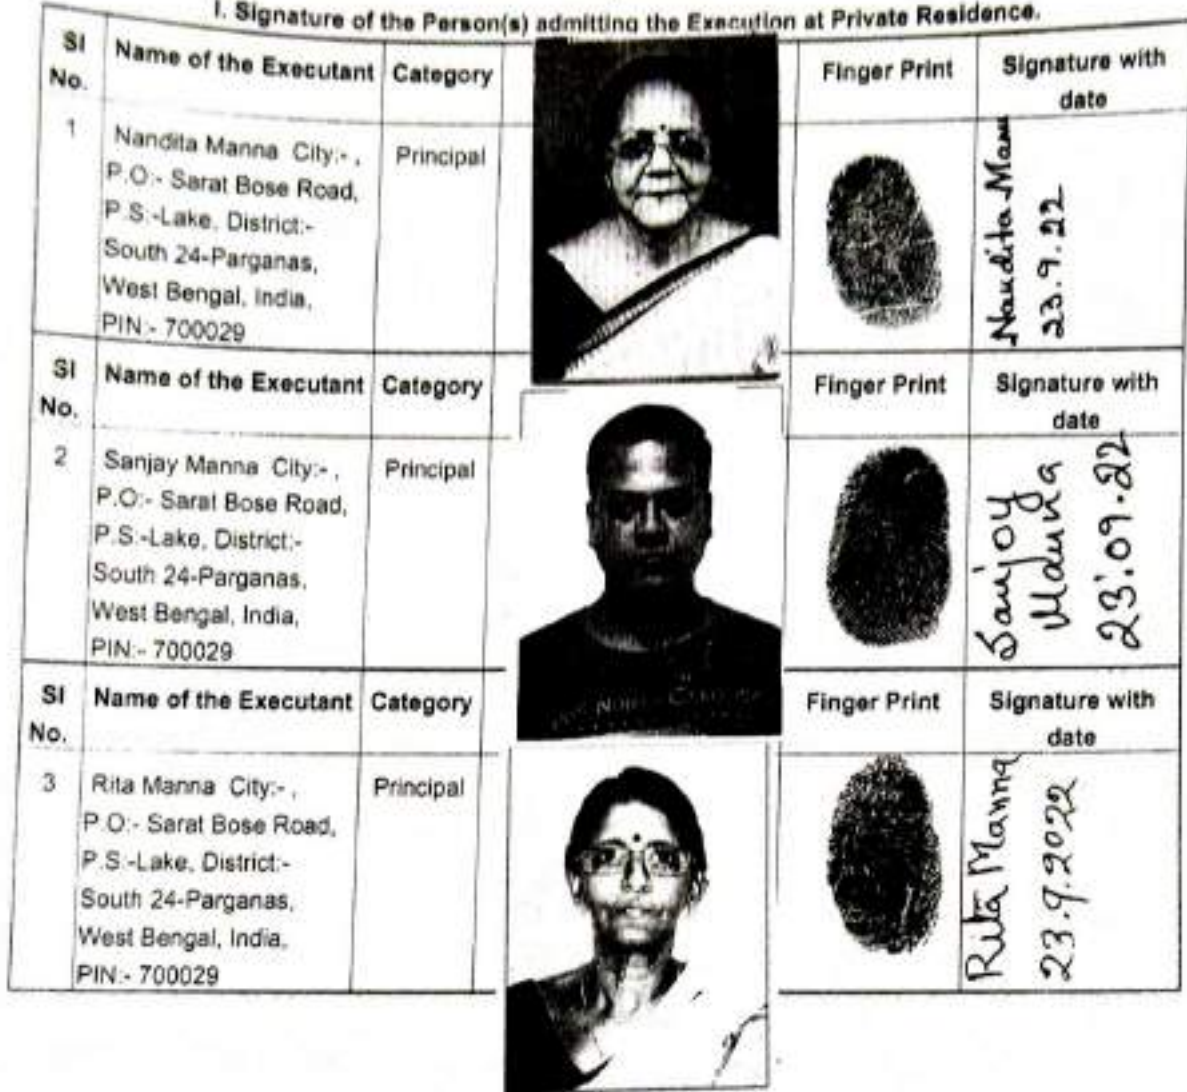 I. Signature of the Person(s) admitting the Execution at Private Residence.
Sl No. Name of the Executant Category Finger Print Signature with date
1 Nandita Manna City:- , Principal
P.O:- Sarat Bose Road,
P.S:-Lake, District:-
South 24-Parganas,
West Bengal, India,
PIN:- 700029
Nandita Manna
23.9.22
Sl No. Name of the Executant Category Finger Print Signature with date
2 Sanjay Manna City:- , Principal
P.O:- Sarat Bose Road,
P.S:-Lake, District:-
South 24-Parganas,
West Bengal, India,
PIN:- 700029
Sanjoy
Manna
23.09.22
Sl No. Name of the Executant Category Finger Print Signature with date
3 Rita Manna City:- , Principal
P.O:- Sarat Bose Road,
P.S:-Lake, District:-
South 24-Parganas,
West Bengal, India,
PIN:- 700029
Rita Manna
23.9.2022